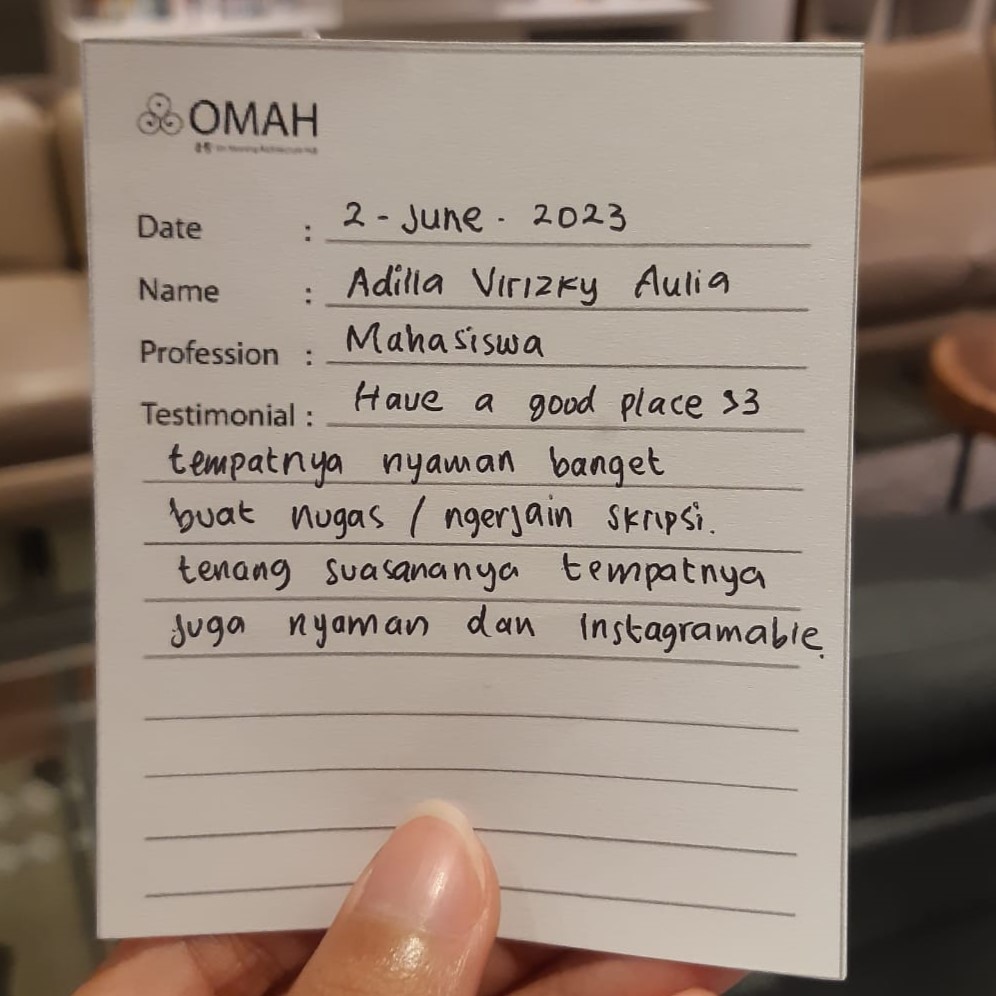 OMAH
Date : 2 - June - 2023
Name : Adilla Virizky Aulia
Profession : Mahasiswa
Testimonial : Have a good place :3
tempatnya nyaman banget
buat nugas / ngerjain skripsi.
tenang suasananya tempatnya
juga nyaman dan Instagramable.